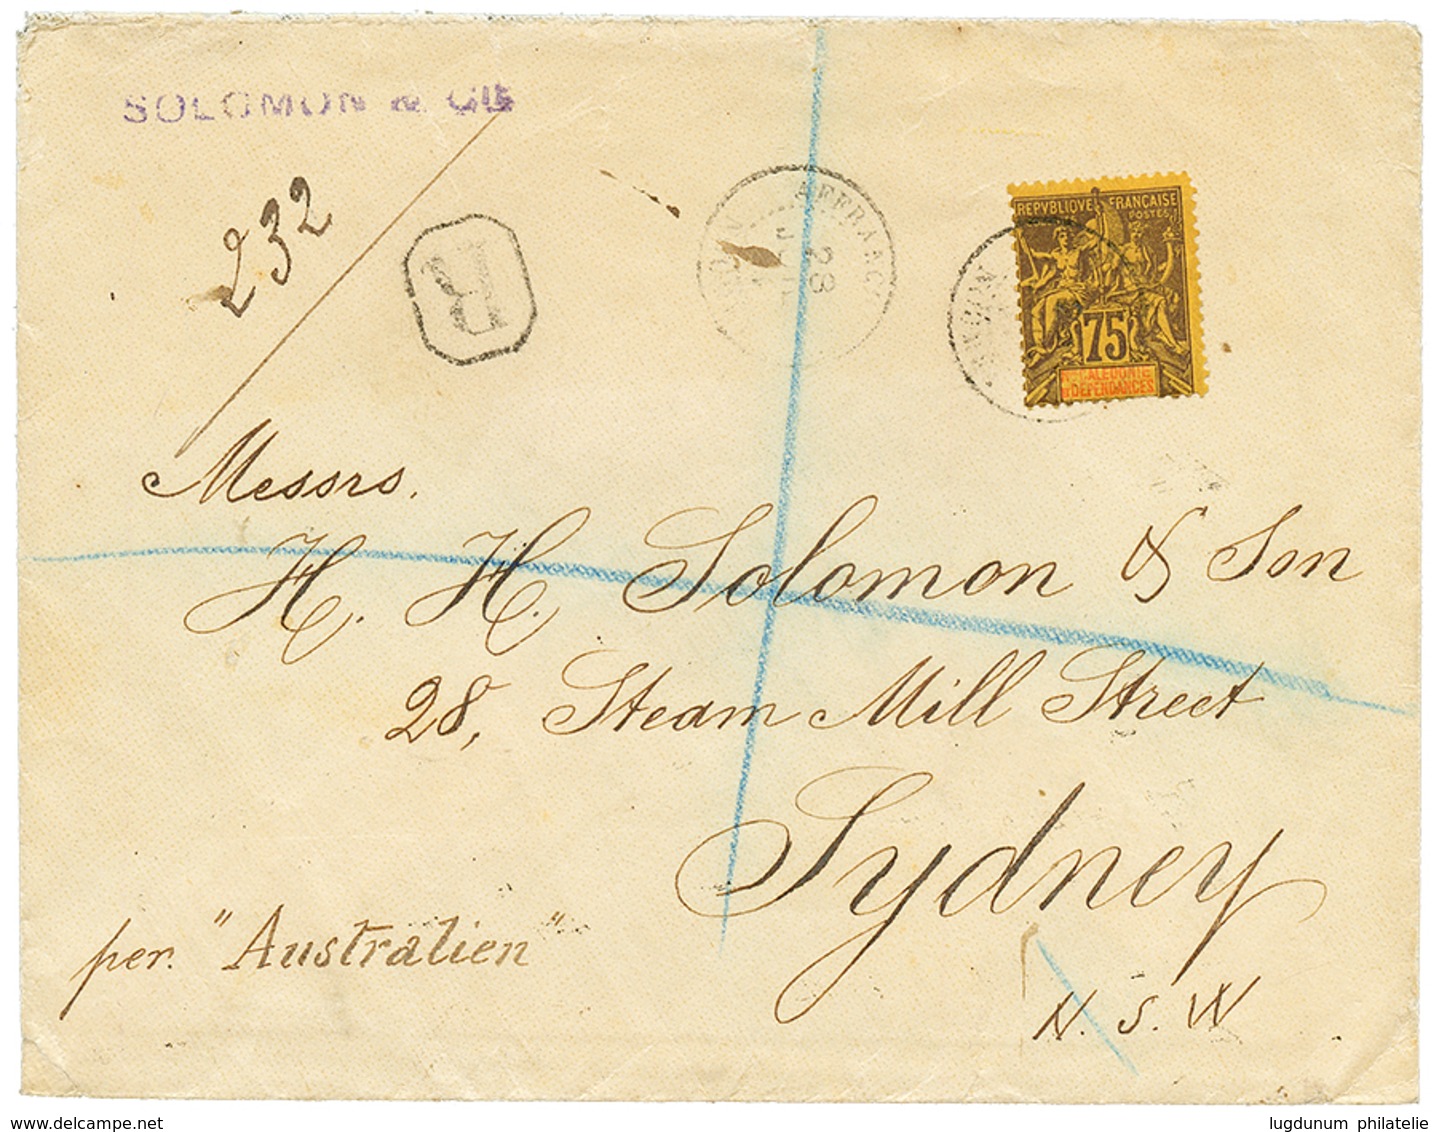 SOLOMON & CIE
232
R
28
REPVBLIQVE FRANÇAISE
POSTES
75
DÉPENDANCES
Messrs.
H. H. Solomon & Son
28, Steam Mill Street
Sydney
per. "Australien"
N. S. W
www.delcampe.net
lugdunum philatelie